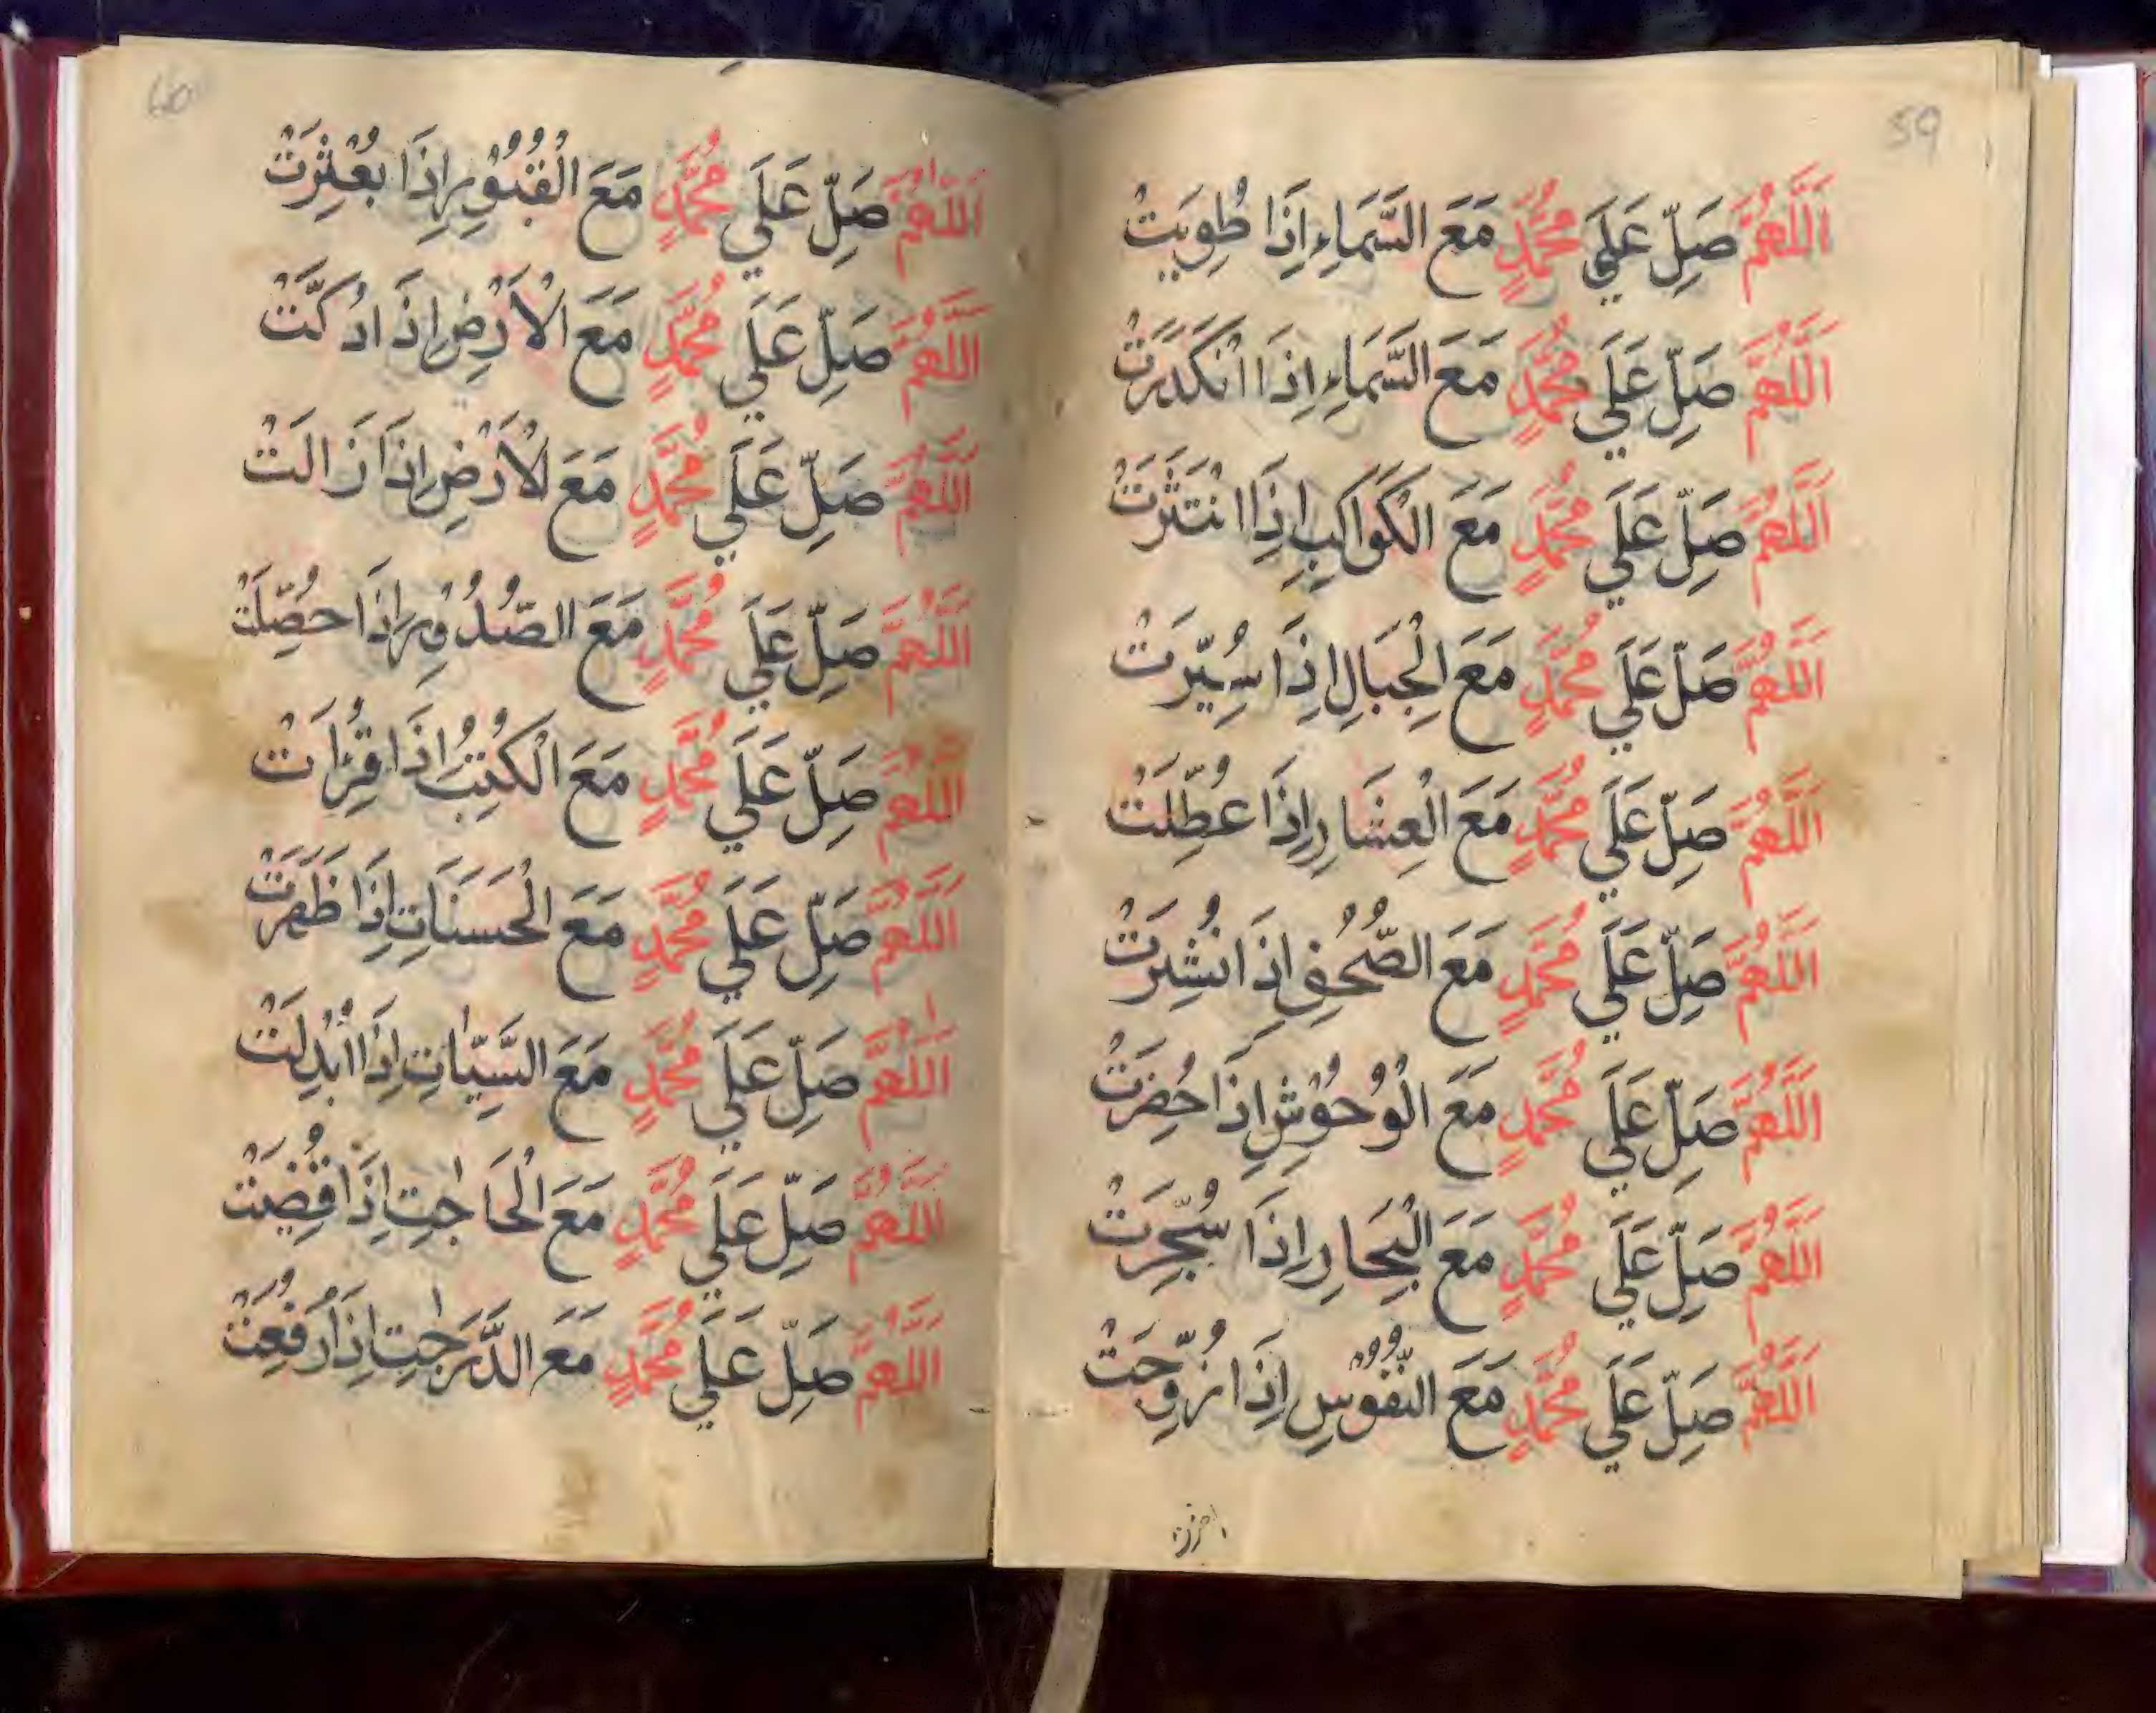 59
اَللَّهُمَّ صَلِّ عَلَي مُحَمَّدٍ مَعَ السَّمَاءِ اِذَا طُوِيَتْ
اَللَّهُمَّ صَلِّ عَلَي مُحَمَّدٍ مَعَ السَّمَاءِ اِذَا انْكَدَرَتْ
اَللَّهُمَّ صَلِّ عَلَي مُحَمَّدٍ مَعَ الْكَوَاكِبِ اِذَا انْتَثَرَتْ
اَللَّهُمَّ صَلِّ عَلَي مُحَمَّدٍ مَعَ الْجِبَالِ اِذَا سُيِّرَتْ
اَللَّهُمَّ صَلِّ عَلَي مُحَمَّدٍ مَعَ الْعِشَارِ اِذَا عُطِّلَتْ
اَللَّهُمَّ صَلِّ عَلَي مُحَمَّدٍ مَعَ الصُّحُفِ اِذَا نُشِرَتْ
اَللَّهُمَّ صَلِّ عَلَي مُحَمَّدٍ مَعَ الْوُحُوْشِ اِذَا حُضِرَتْ
اَللَّهُمَّ صَلِّ عَلَي مُحَمَّدٍ مَعَ الْبِحَارِ اِذَا سُجِّرَتْ
اَللَّهُمَّ صَلِّ عَلَي مُحَمَّدٍ مَعَ النُّفُوْسِ اِذَا زُوِّجَتْ
60
اَللّٰهُمَّ صَلِّ عَلَي مُحَمَّدٍ مَعَ الْقُبُوْرِ اِذَا بُعْثِرَتْ
اَللَّهُمَّ صَلِّ عَلَي مُحَمَّدٍ مَعَ الْاَرْضِ اِذَا دُكَّتْ
اَللَّهُمَّ صَلِّ عَلَي مُحَمَّدٍ مَعَ لْاَرْضِ اِذَا زَالَتْ
اَللَّهُمَّ صَلِّ عَلَي مُحَمَّدٍ مَعَ الصُّدُوْرِ اِذَا حُصِّلَتْ
اَللَّهُمَّ صَلِّ عَلَي مُحَمَّدٍ مَعَ الْكُتُبِ اِذَا قُرِئَاتْ
اَللَّهُمَّ صَلِّ عَلَي مُحَمَّدٍ مَعَ الْحَسَنَاتِ اِذَا ظَهَرَتْ
اَللّٰهُمَّ صَلِّ عَلَي مُحَمَّدٍ مَعَ السَّيِّاٰتِ اِذَا اُبْدِلَتْ
اَللَّهُمَّ صَلِّ عَلَي مُحَمَّدٍ مَعَ الْحَاجٰتِ اِذَا قُضِيَتْ
اَللَّهُمَّ صَلِّ عَلَي مُحَمَّدٍ مَعَ الدَّرَجٰتِ اِذَا رُفِعَتْ